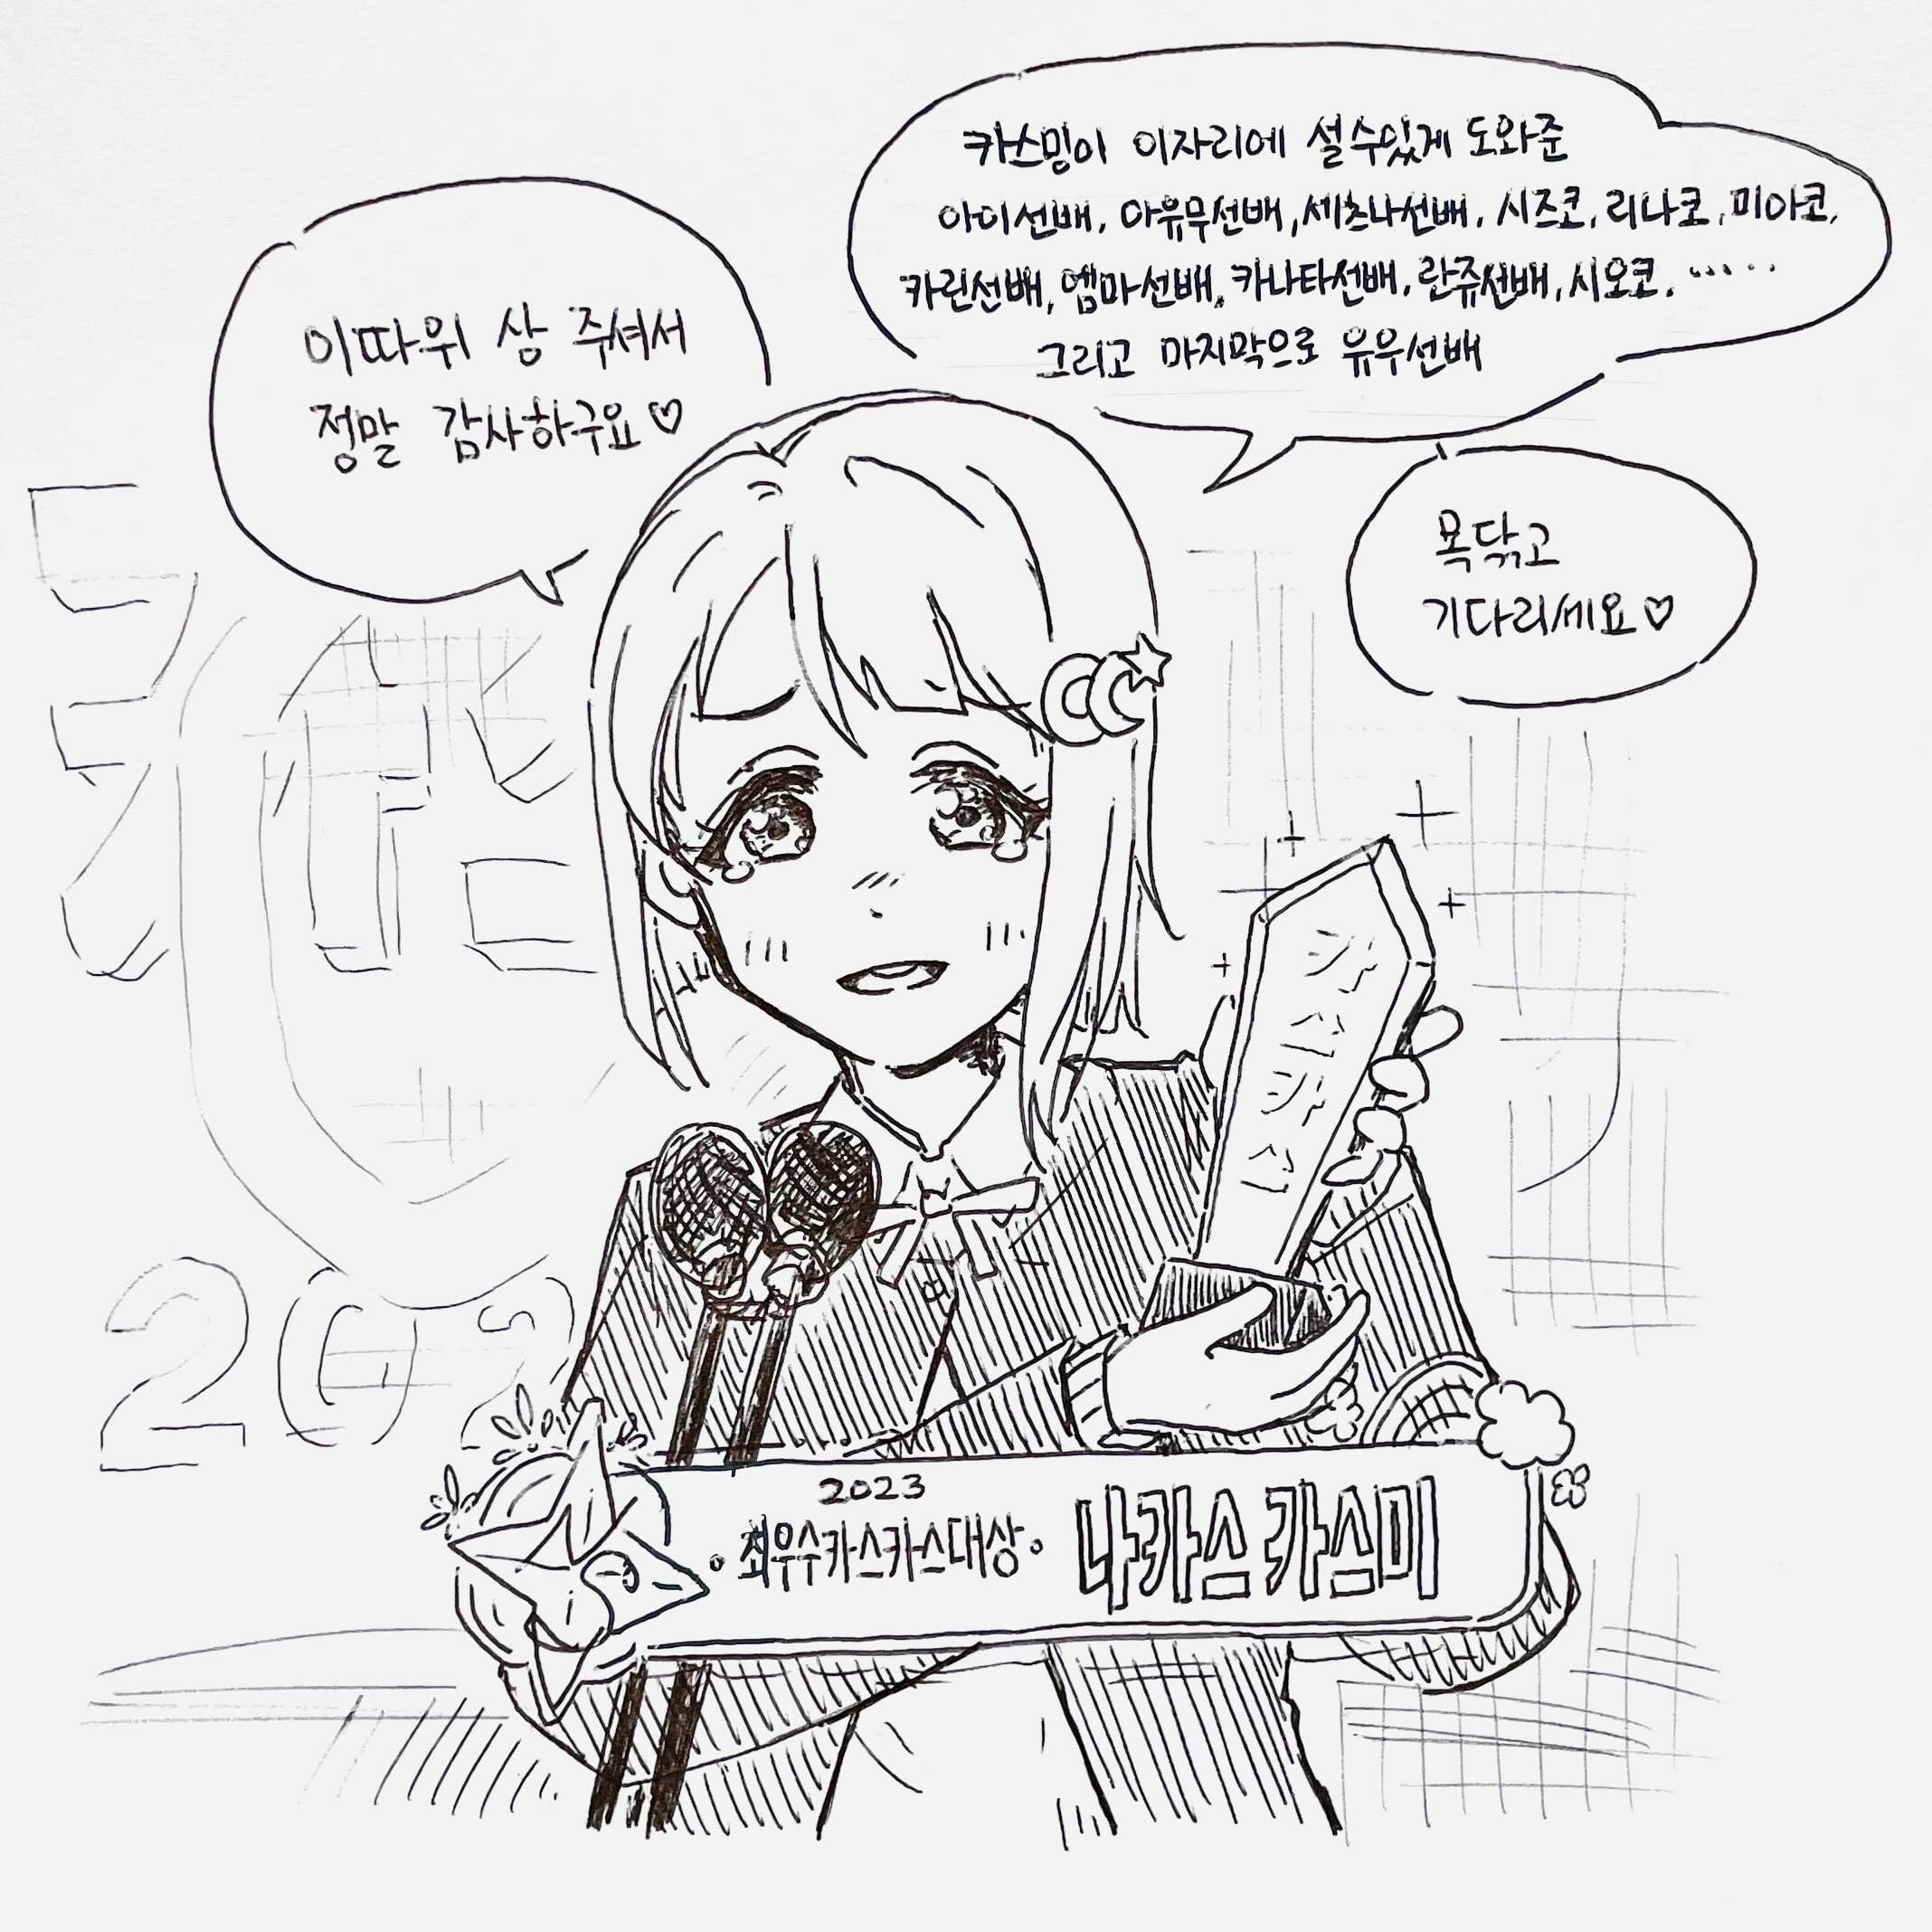 이따위 상 주셔서
정말 감사하구요♡
카스밍이 이자리에 설수있게 도와준
아이선배, 아유무선배, 세츠나선배, 시즈코, 리나코, 미아코,
카린선배, 엠마선배, 카나타선배, 란쥬선배, 시오코, ······
그리고 마지막으로 유우선배
목닦고
기다리세요♡
카스카스
202
2023
·최우수카스카스대상·
나카스 카스미